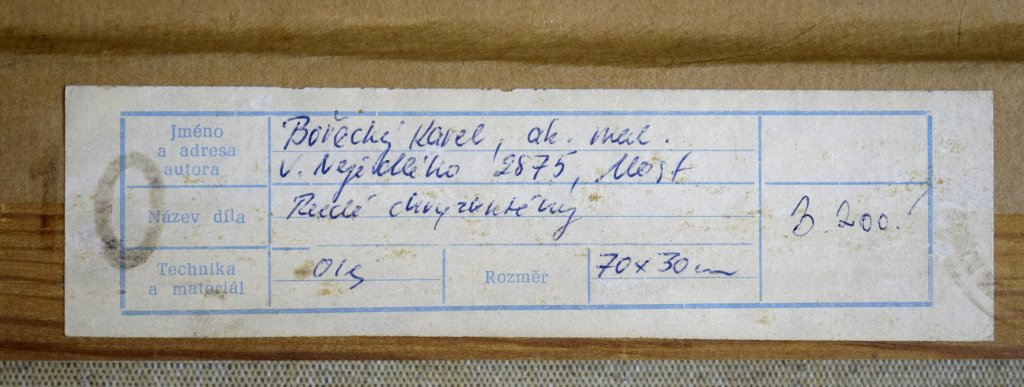 Jméno
a adresa
autora
Bořecký Karel, ak. mal.
V. Nejedlého 2875, Most
Název díla
Rudé chryzantémy
3.200.
Technika
a materiál
Olej
Rozměr
70x30cm